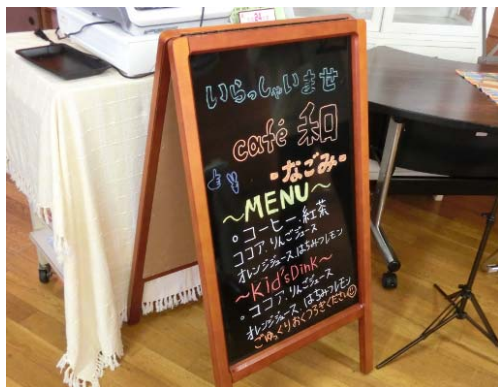 いらっしゃいませ
café 和
・なごみ・
〜MENU〜
。コーヒー.紅茶
ココア.りんごジュース
オレンジジュース.はちみつレモン
〜Kid'sDink〜
。ココア.りんごジュース
オレンジジュース.はちみつレモン
ごゆっくりおくつろぎください☺